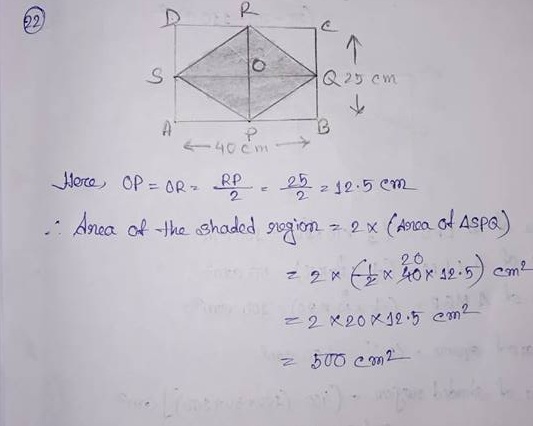 22
D R C
S O Q 25 cm
A P B
40 cm
Here, OP = OR = RP/2 = 25/2 = 12.5 cm
∴ Area of the shaded region = 2 × (Area of ΔSPQ)
= 2 × (1/2 × 40 20 × 12.5) cm²
= 2 × 20 × 12.5 cm²
= 500 cm²